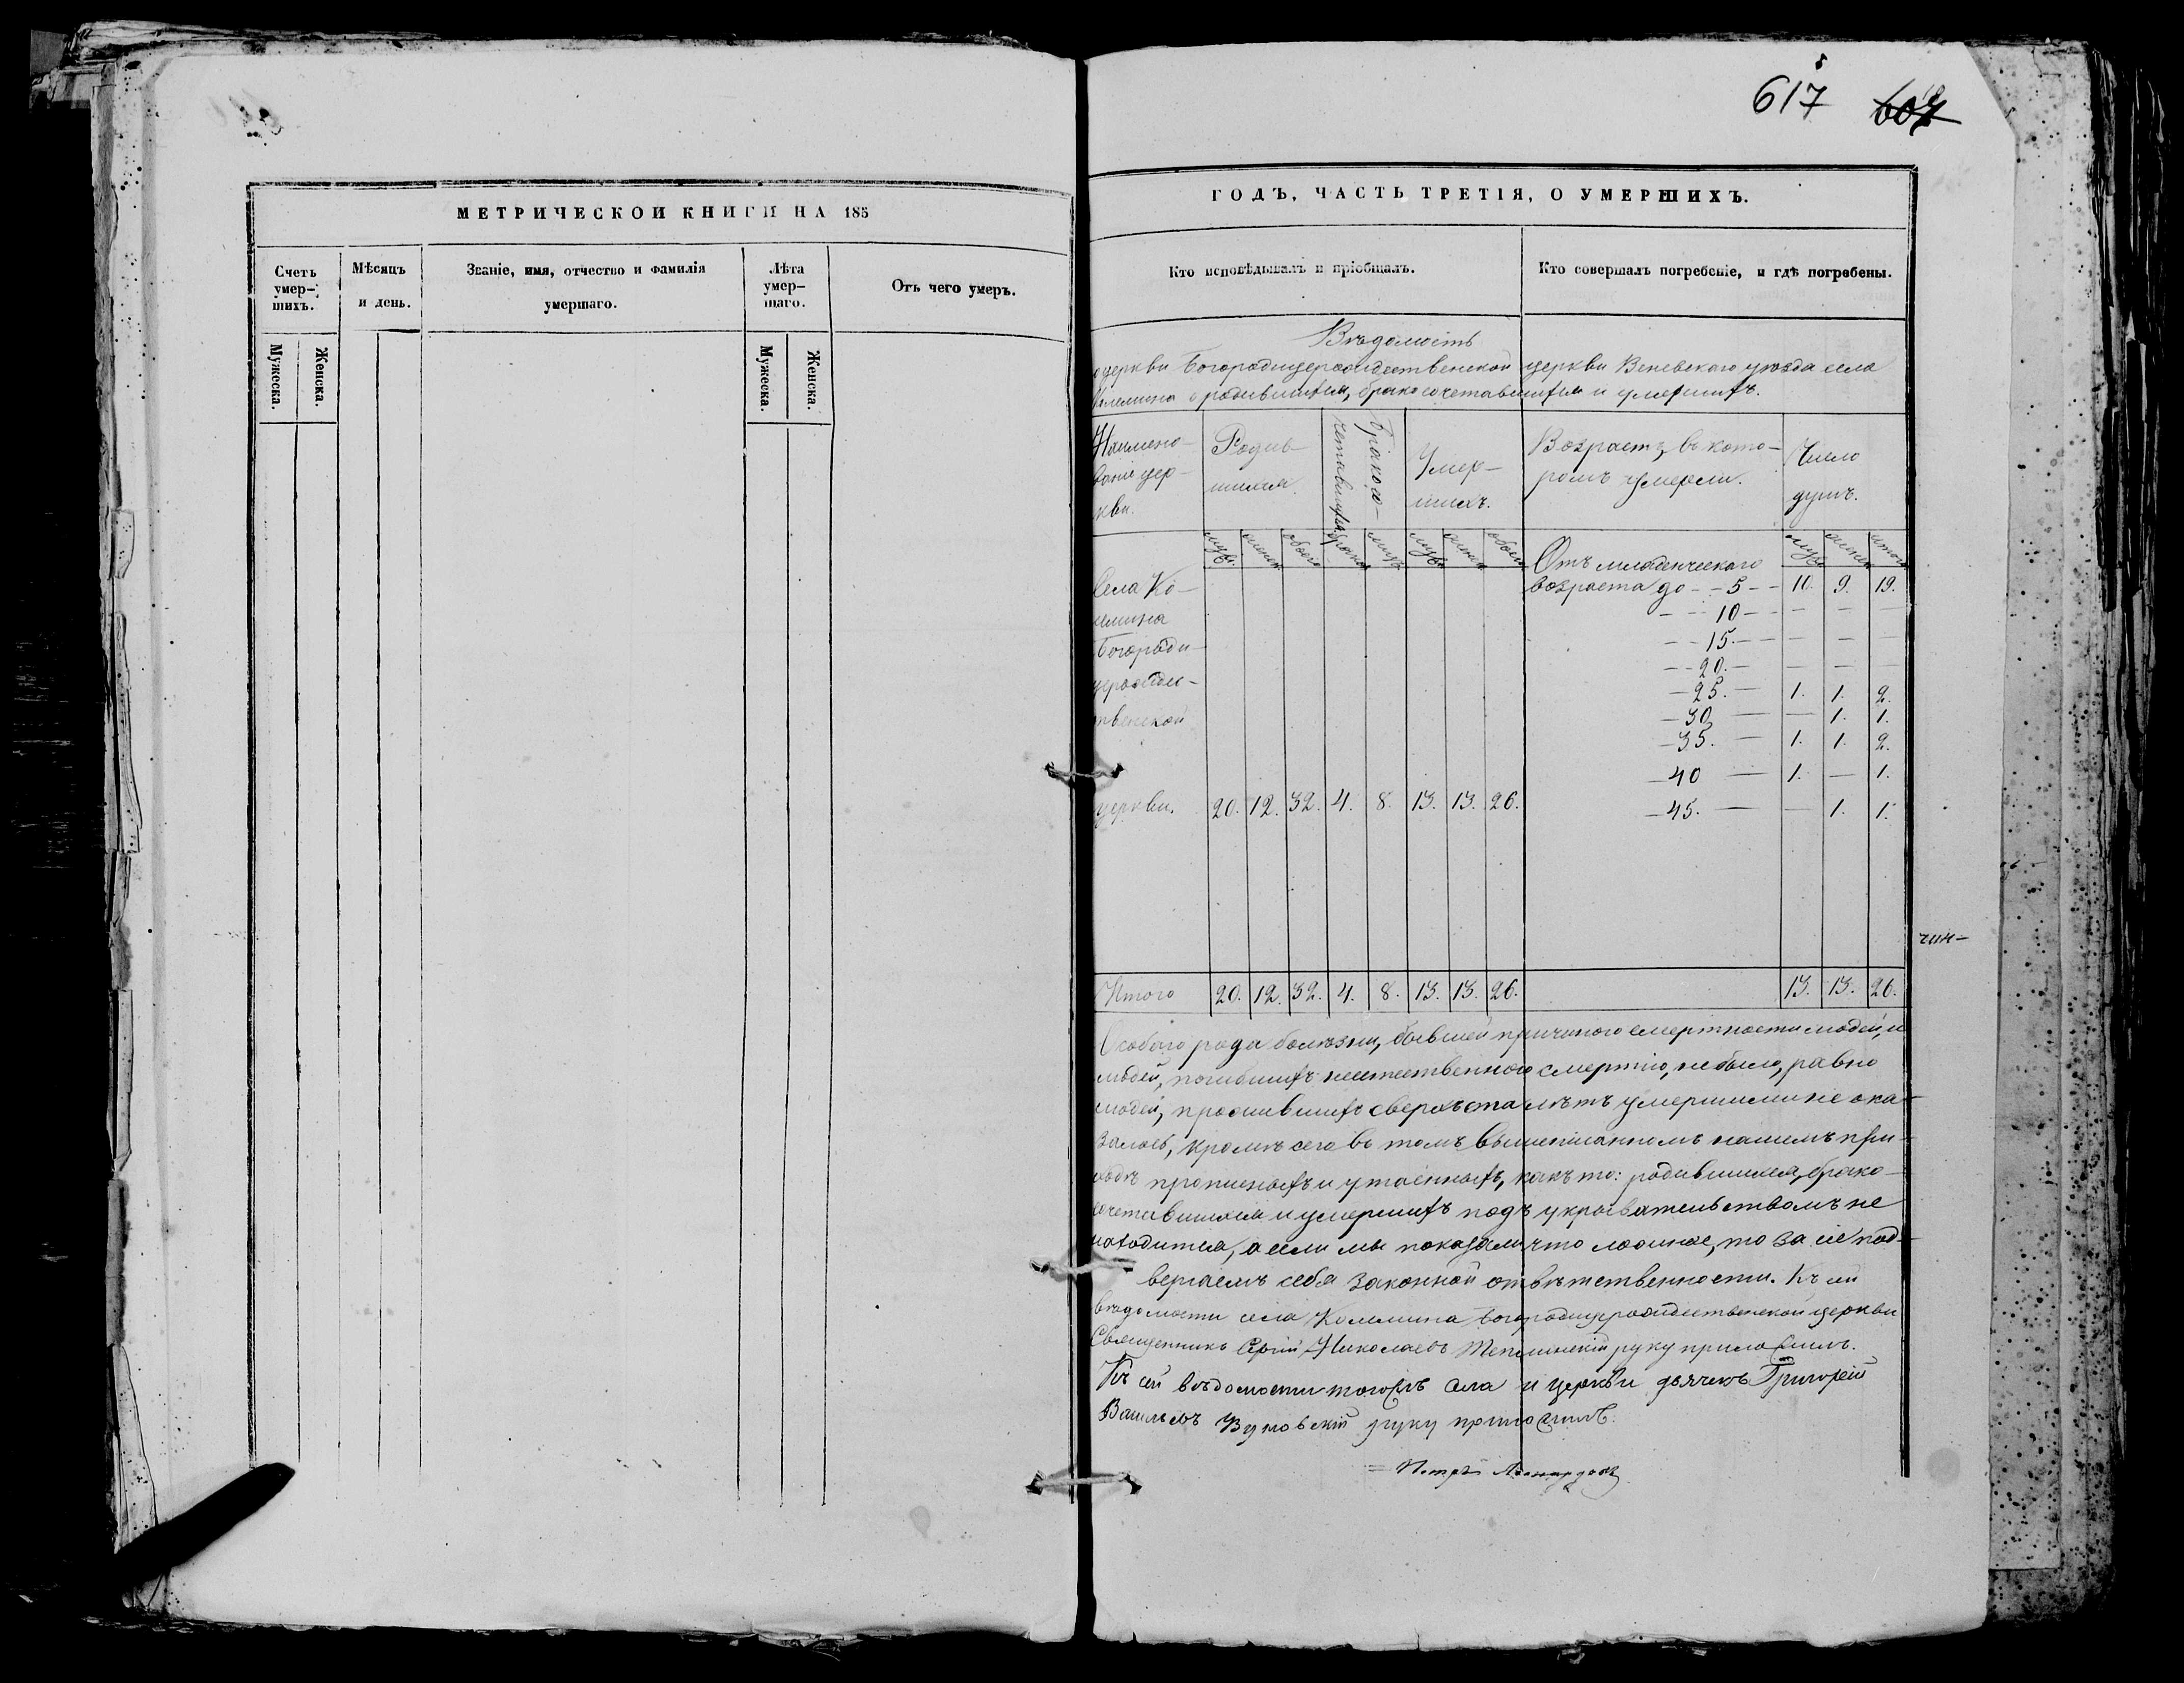 617 607
МЕТРИЧЕСКОЙ КНИГИ НА 185
Счетъ умер-шихъ.
Мужеска. Женска.
Мѣсяцъ и день.
Званіе, имя, отчество и фамилія умершаго.
Лѣта умер-шаго.
Мужеска. Женска.
Отъ чего умеръ.
ГОДЪ, ЧАСТЬ ТРЕТІЯ, О УМЕРШИХЪ.
Кто исповѣдывалъ и пріобщалъ.
Кто совершалъ погребеніе, и гдѣ погребены.
Вѣдомость
церкви Богородицерождественской церкви Веневского уѣзда села
о родившихся, бракосочетавшихся и умершихъ.
Наимено-
ваніе цер-
кви.
Родив-
шихся.
Бракосо-
четавшихся
Умер-
шихъ.
Возрастъ, въ кото-
ромъ умерли.
Число
душъ.
муж. женск. обоего муж. женск. обоего
муж. женск. итого
Отъ младенческаго
возраста до - - 5 - - 10. 9. 19.
- - 10 - - - - -
- - 15. - - - - -
- - 20. - - - -
- 25. - 1. 1. 2.
- 30 - - 1. 1.
- 35. - 1. 1. 2.
- 40 - 1. - 1.
- 45. - - 1. 1.
Села Ко-
лмина
Богороди-
церождес-
твенской
церкви. 20. 12. 32. 4. 8. 13. 13. 26.
чин-
Итого 20. 12. 32. 4. 8. 13. 13. 26. 13. 13. 26.
Особаго рода болѣзни, бывшей причиною смертности людей, и
людей, погибшихъ неестественною смертію, не было, равно
людей, прожившихъ сверхъ ста лѣтъ умершими не ока-
залось, кромѣ сего въ томъ вышеписанномъ нашемъ при-
ходѣ прописныхъ и утаенныхъ, какъ то: родившихся, брако-
сочетавшихся и умершихъ подъ укрывательствомъ не
находится, а если мы показали что ложное, то за сіе под-
вергаемъ себя законной отвѣтственности. Къ сей
вѣдомости села Колмина Богородицерождественской церкви
Священникъ Сергій Николаевъ Теплинскій руку приложилъ.
Къ сей вѣдомости тогожъ села и церкви дьячекъ Григорій
Васильевъ Узловскій руку приложилъ.
Петръ